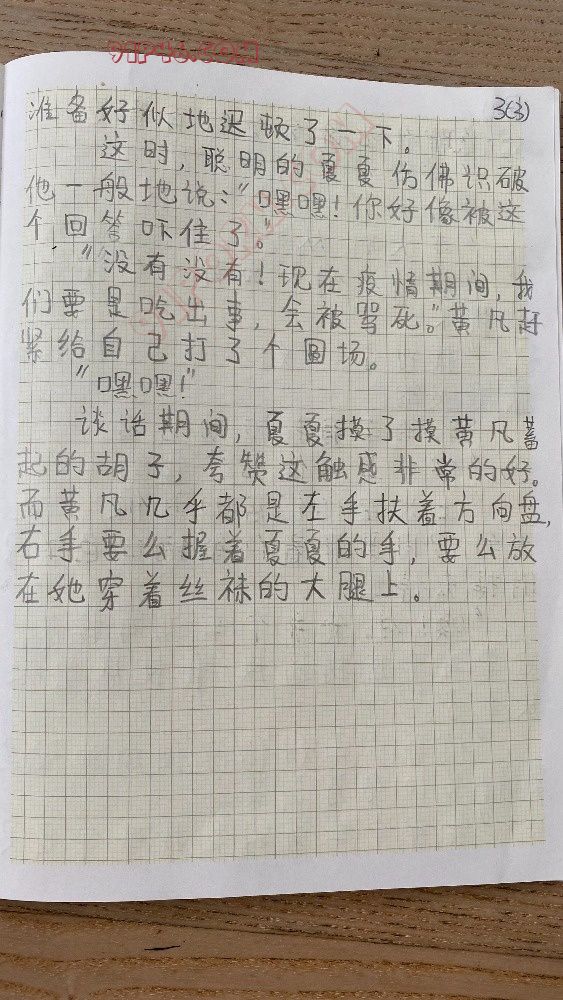 3(3)
准备好似地迟顿了一下。
这时，聪明的夏夏仿佛识破
他一般地说：“嘿嘿！你好像被这
个回答吓住了。”
“没有没有！现在疫情期间，我
们要是吃出事，会被骂死。”黄凡赶
紧给自己打了个圆场。
“嘿嘿！”
谈话期间，夏夏摸了摸黄凡蓄
起的胡子，夸赞这触感非常的好。
而黄凡几乎都是左手扶着方向盘，
右手要么握着夏夏的手，要么放
在她穿着丝袜的大腿上。